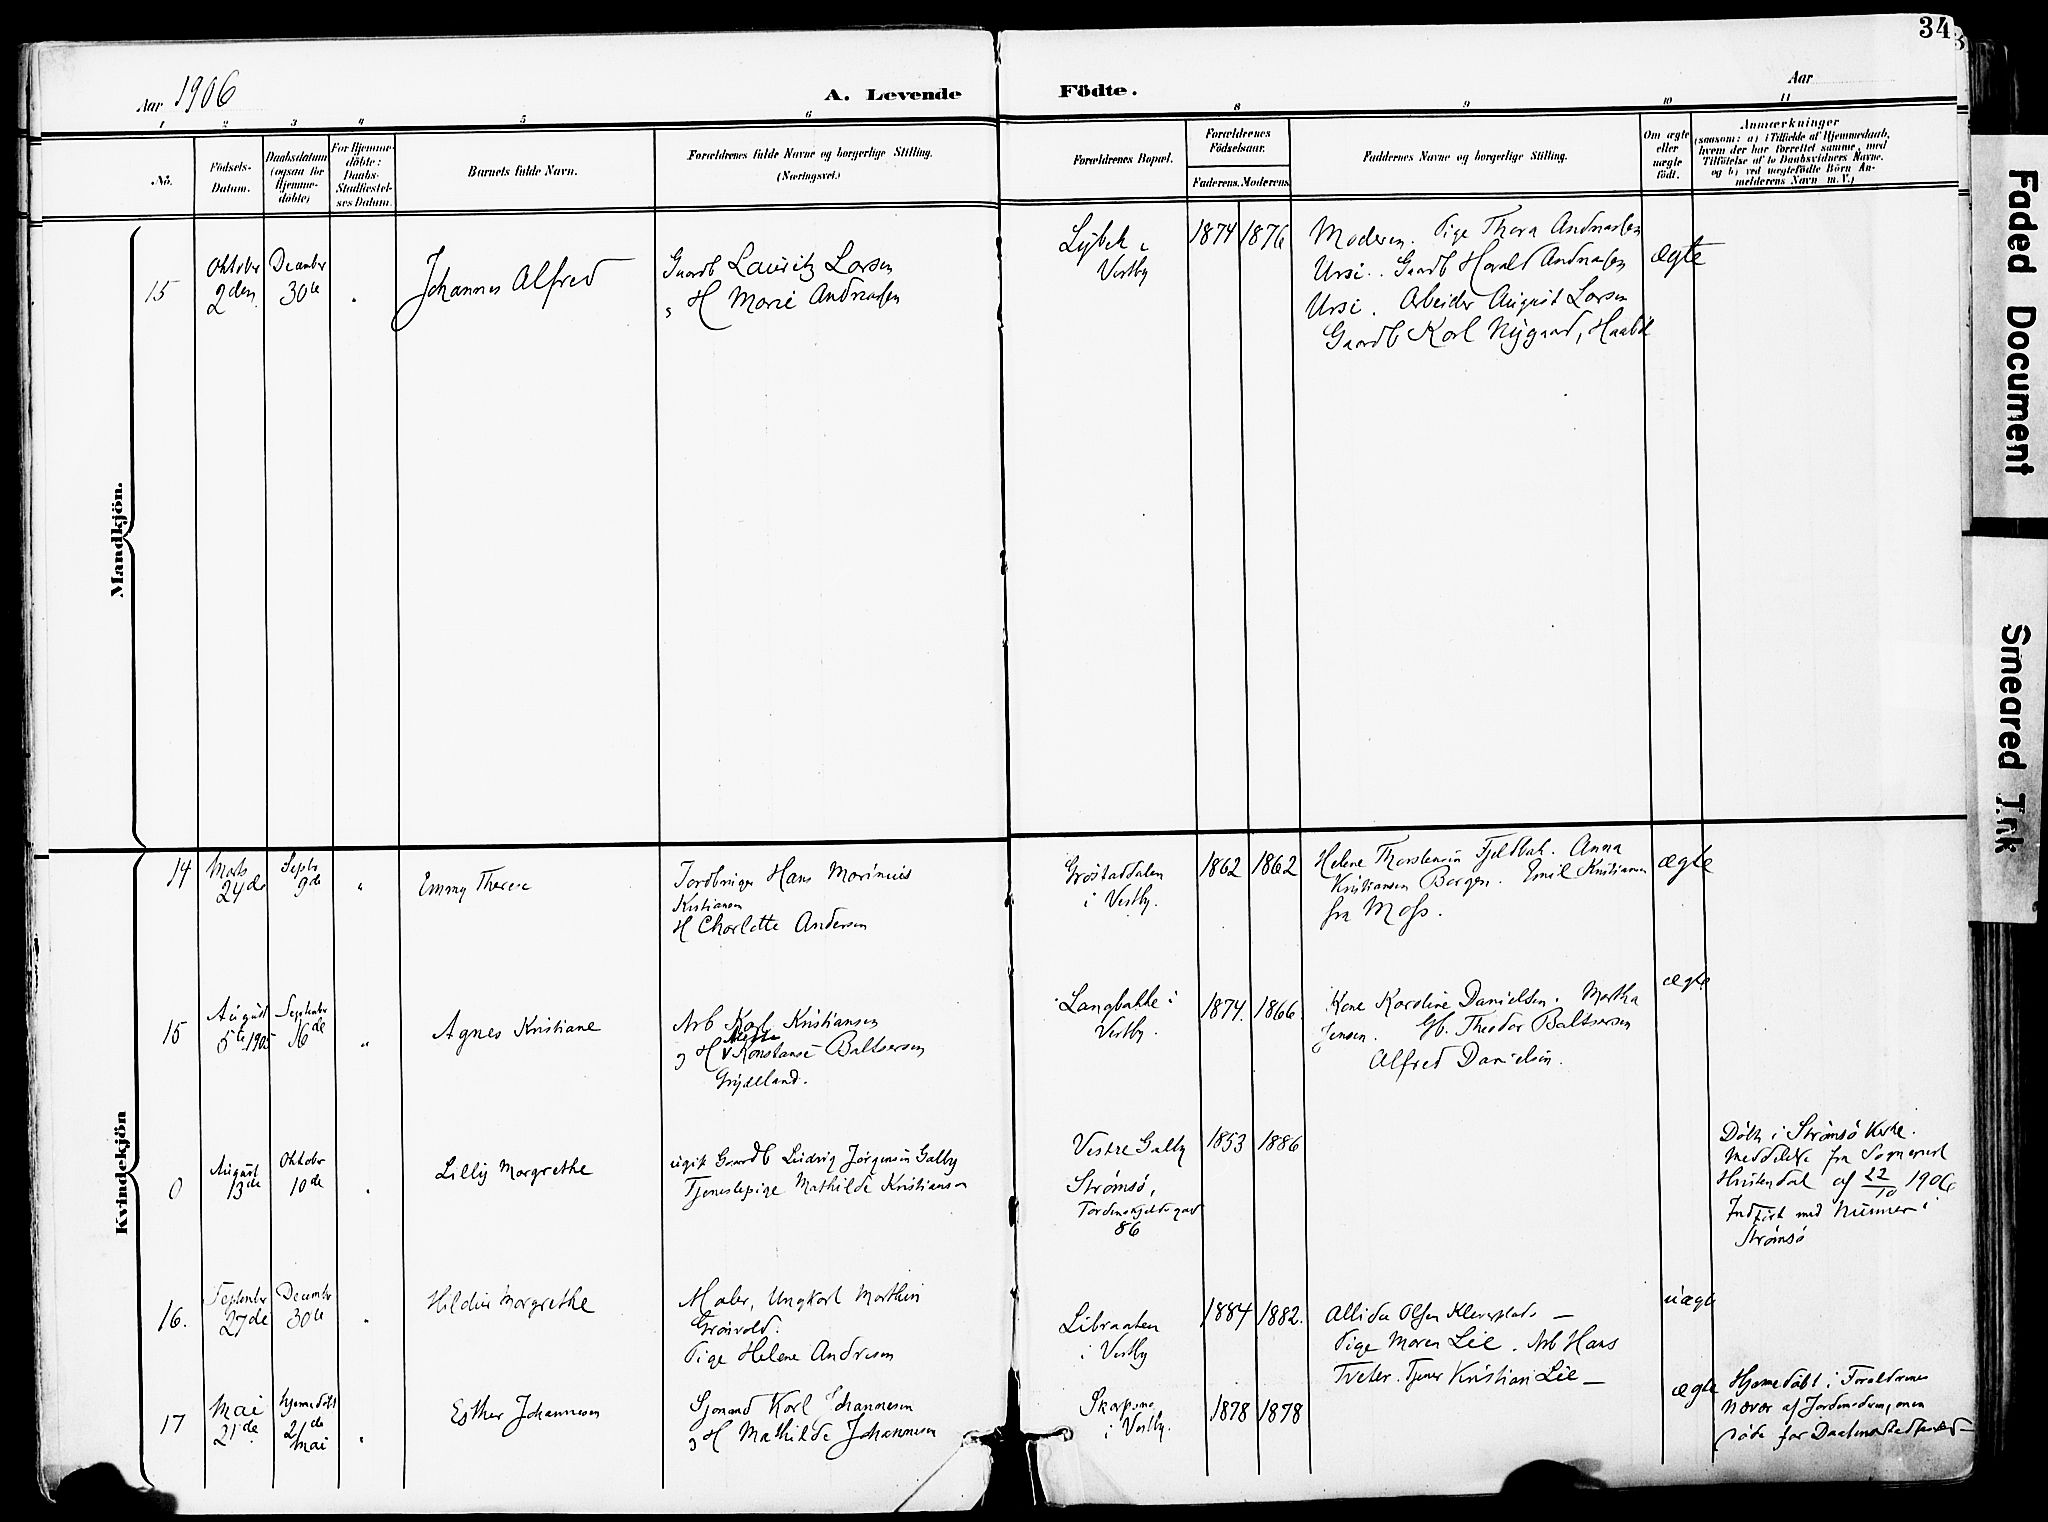 34
Aar 1906
A. Levende Födte.
Aar
1 2 3 4 5 6 8 9 10 11
No.
Födsels-Datum.
Daabsdatum (ogsaa for Hjemme-döbte)
For Hjemme-döbte: Daabs-Stadfæstel-ses Datum.
Barnets fulde Navn.
Forældrenes fulde Navne og borgerlige Stilling. (Næringsvei.)
Forældrenes Bopæl.
Forældrenes Födselsaar.
Faderens. Moderens.
Faddernes Navne og borgerlige Stilling.
Om ægte eller uægte födt.
Anmærkninger
(saasom: a) i Tilfælde af Hjemmedaab,
hvem der har forrettet samme, med
Tilföielse af to Daabsvidners Navne.
og b) ved uægtefödte Börn An-
melderens Navn m. V.)
Mandkjön.
15
Oktober
2den
December
30te
Johannes Alfred
Gaardb Lauritz Larsen
H Marie Andreassen
Lybek i
Vestby
1874 1876
Moderen. Pige Thora Andreassen
Ursi. Gaardb Harald Andreassen
Ursi. Arbeider August Larsen
Gaardb Karl Nygaard,
ægte
Kvindekjön
14
Marts
24de
Septbr
9de
Emmy Therese
Jordbruger Hans Marinius
Kristiansen
H Charlotte Andersen
Grøstaddalen
i Vestby.
1862 1862
Helene Thorstensen Fjeldbak. Anna
Kristiansen Borgen. Emil Kristiansen
fra Moss.
ægte
15
August
5te 1905
September
16de
Agnes Kristiane
Arb Karl Kristiansen
H Konstanse Baltsersen
Langbakke i
Vestby.
1874. 1866
Kone Karoline Danielsen. Martha
Jensen. Gb. Theodor Baltsersen
Alfred Danielsen.
ægte
0
August
13de
Oktober
10de
Lilly Margrethe
ugift Gaardb Ludvig Jørgensen Galby
Tjenestepige Mathilde Kristiansen
Vestre Galby
Strømsø,
Tordenskjoldsgad
86
1853 1886
Døbt i Strømsø Kirke.
Meddelelse fra Sognepræst
af 22/10 1906
Indført med Nummer i
Strømsø
16.
September
27de
December
30te
Margrethe
Maler, Ungkarl Marthin
Grønvold.
Pige Helene Andresen
Libraaten
i Vestby
1884 1882.
Allida Olsen Kleverplads —
Pige Maren Lie. Arb Hans
Tveter. Tjener Kristian Lie —
uægte
17
Mai
21de
hjemedøbt
21de
Mai
Esther Johannesen
Sjømand Karl Johannesen
H Mathilde Johannesen
i Vestby.
1878 1878
ægte
Hjemedøbt i Forældrenes
Nærvær af Jordemoderen, men
døde før
Faded Document
Smeared Ink